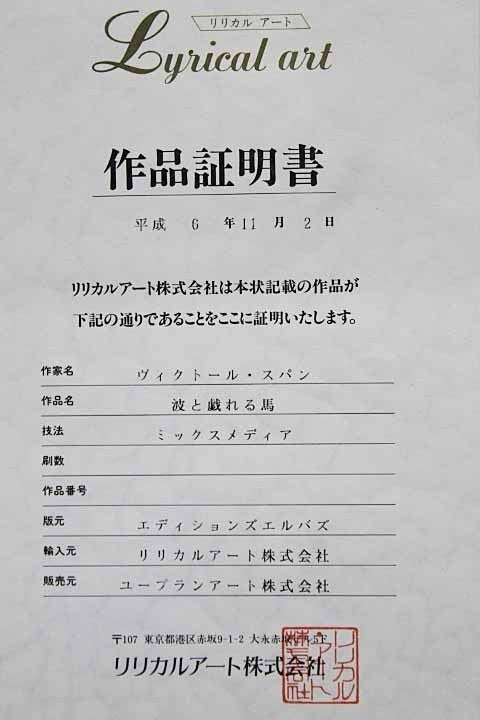 リリカル アート
Lyrical art
作品証明書
平成 6 年 11 月 2 日
リリカルアート株式会社は本状記載の作品が
下記の通りであることをここに証明いたします。
作家名 ヴィクトール・スパン
作品名 波と戯れる馬
技法 ミックスメディア
刷数
作品番号
版元 エディションズエルバズ
輸入元 リリカルアート株式会社
販売元 ユーブランアート株式会社
〒107 東京都港区赤坂9-1-2 大永赤坂ビル5F
リリカルアート株式会社
リリカル
アート
株式会社